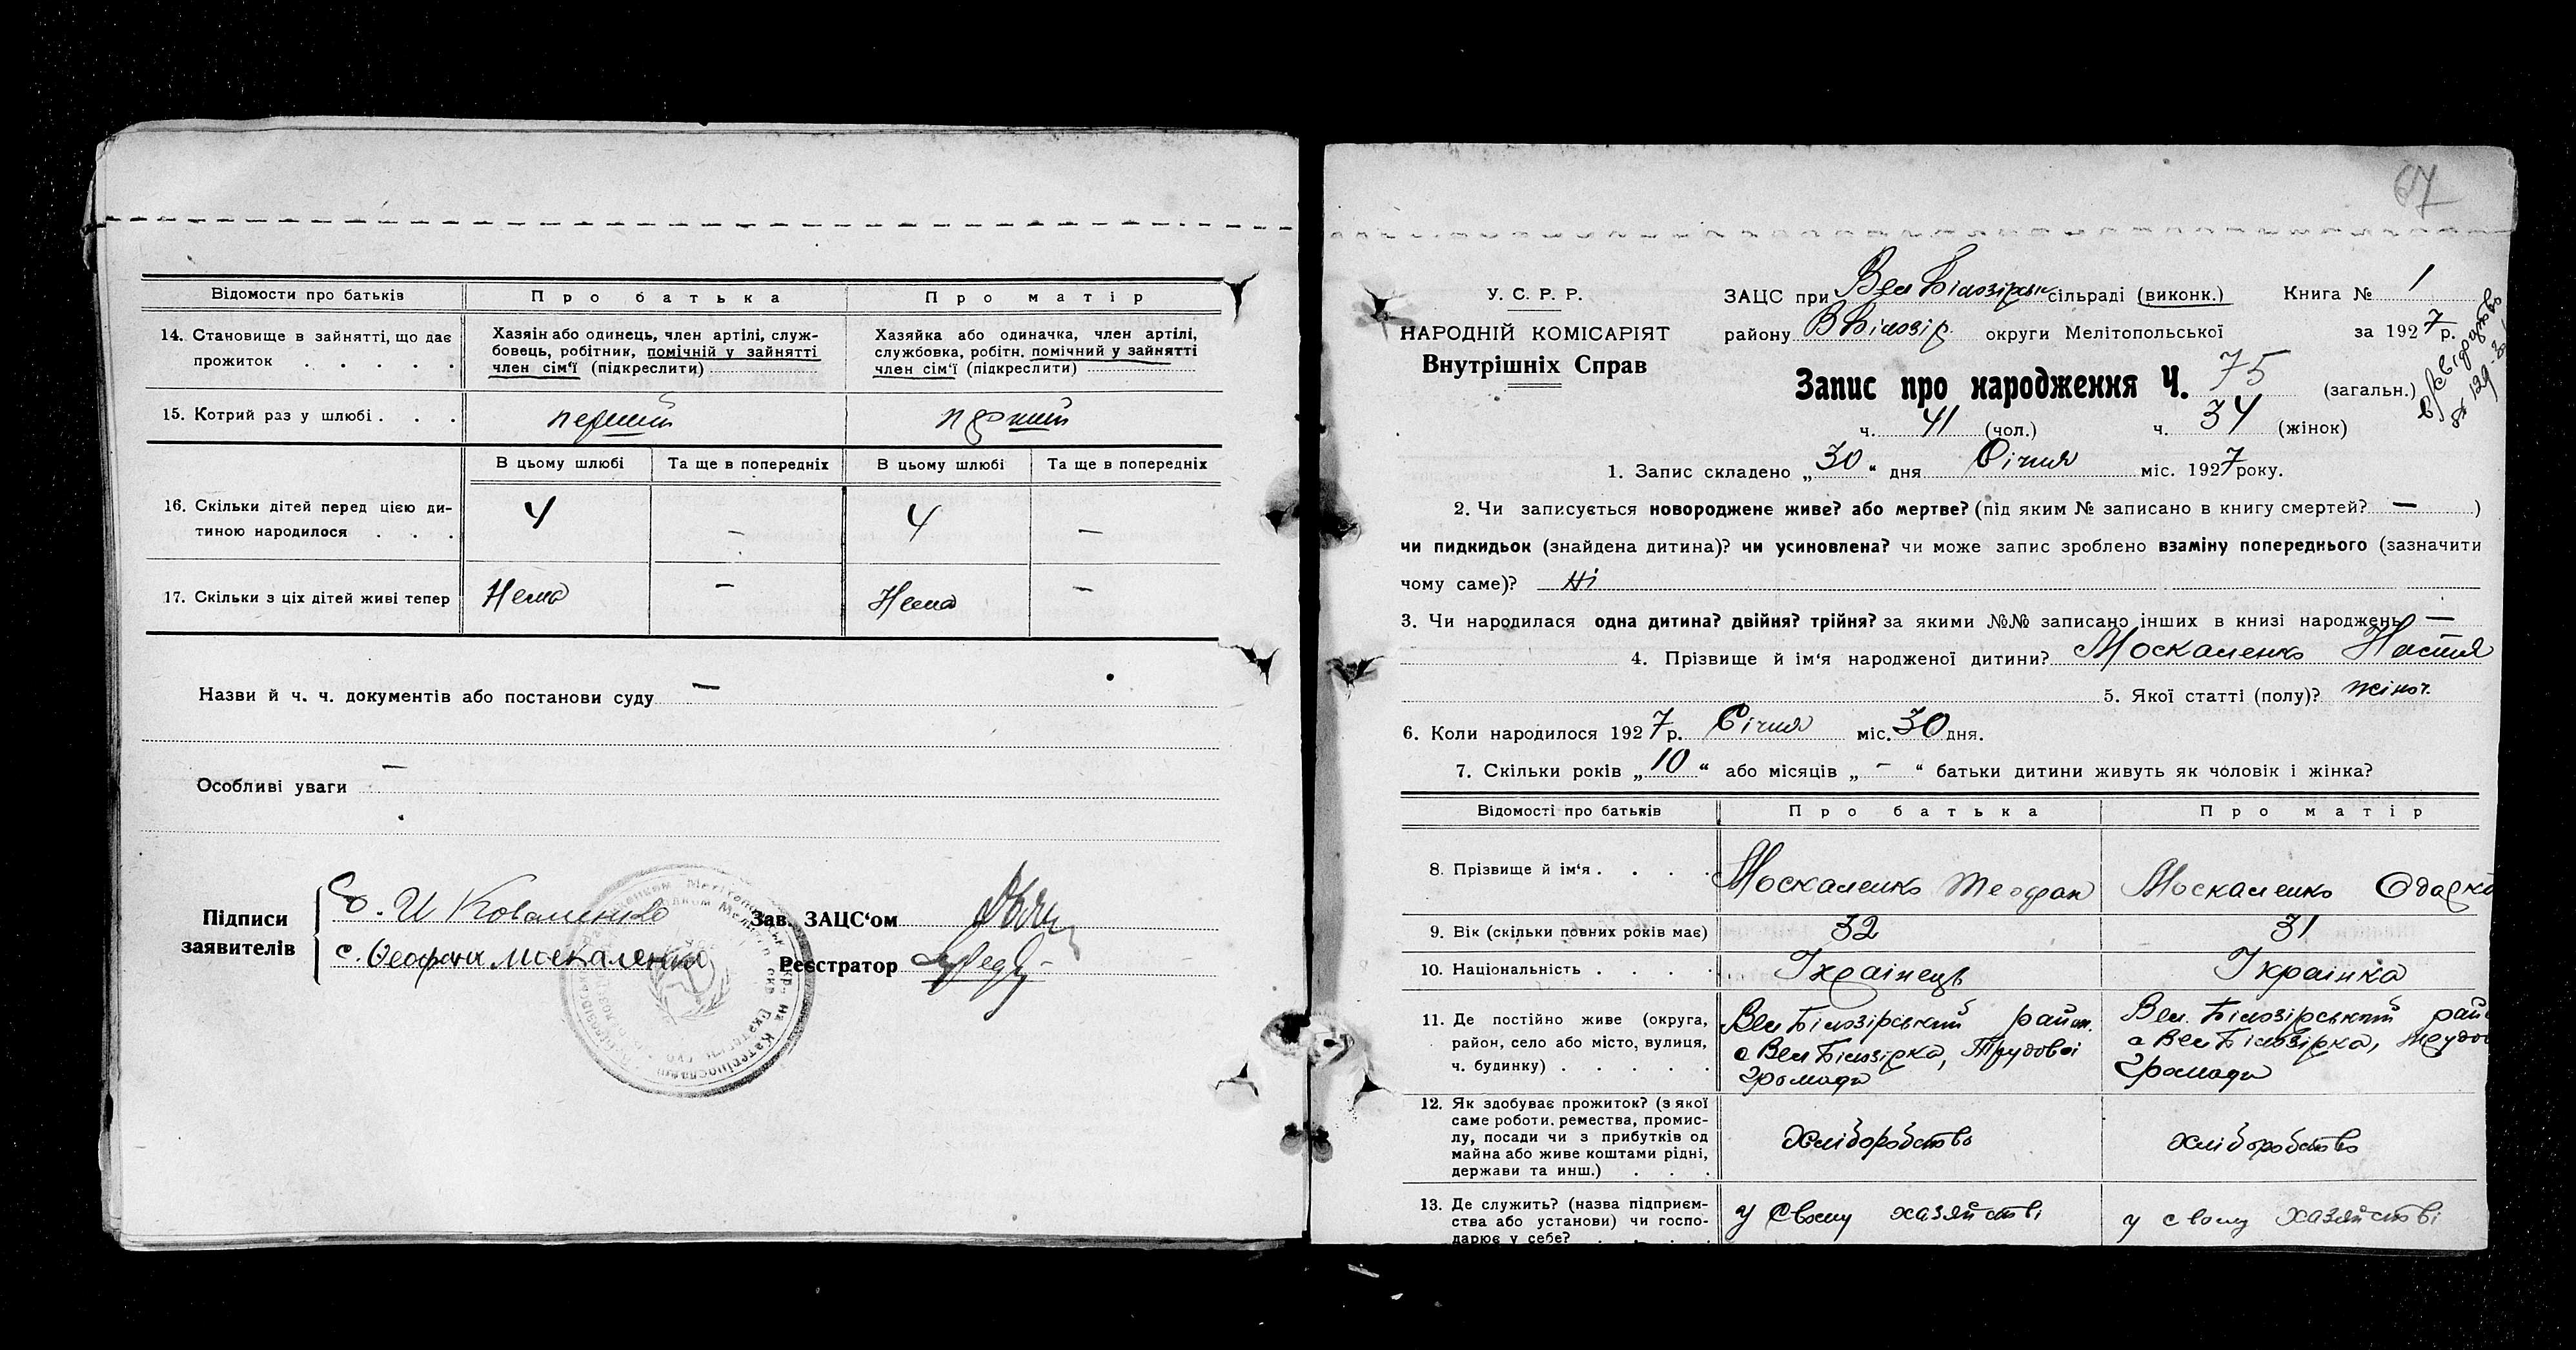 Відомости про батьків
Про батька
Про матір
14. Становище в зайнятті, що дає
прожиток . . . . .
Хазяін або одинець, член артілі, служ-
бовець, робітник, помічній у зайнятті
член сім'ї (підкреслити)
Хазяйка або одиначка, член артілі,
службовка, робітн. помічний у зайнятті
член сім'ї (підкреслити)
15. Котрий раз у шлюбі . . .
перший
перший
В цьому шлюбі
Та ще в попередніх
В цьому шлюбі
Та ще в попередніх
16. Скільки дітей перед цією ди-
тиною народилося . . .
4 – 4 –
17. Скільки з ціх дітей живі тепер
Нема – Нема –
Назви й ч. ч. документів або постанови суду –
Особливі уваги –
Підписи
заявителів
И Коваленко
с. Феофан москаленко
Зав. ЗАЦС'ом
Реєстратор
67
У. С. Р. Р.
НАРОДНІЙ КОМІСАРІЯТ
Внутрішніх Справ
ЗАЦС при Вел Білозірськ сільраді (виконк.) Книга № 1
району ВБілозір. округи Мелітопольської за 1927 р.
Запис про народження Ч. 75 (загальн.)
ч. 41 (чол.) ч. 34 (жінок)
1. Запис складено „30“ дня Січня міс. 1927 року.
2. Чи записується новороджене живе? або мертве? (під яким № записано в книгу смертей? – )
чи пидкидьок (знайдена дитина)? чи усиновлена? чи може запис зроблено взаміну попереднього (зазначити
чому саме)? Ні
3. Чи народилася одна дитина? двійня? трійня? за якими №№ записано інших в книзі народжень –
4. Прізвище й ім'я народженої дитини? Москаленко Настя
5. Якої статті (полу)? жіноч.
6. Коли народилося 1927 р. Січня міс. 30 дня.
7. Скільки років „10“ або місяців „–“ батьки дитини живуть як чоловік і жінка?
Відомості про батьків
Про батька
Про матір
8. Прізвище й ім'я . . . .
Москаленко Теофан
Москаленко Одарка
9. Вік (скільки повних років має)
32
31
10. Національність . . . .
Українець
Українка
11. Де постійно живе (округа,
район, село або місто, вулиця,
ч. будинку) . . . . .
Вел Білозірський район.
с Вел Білозірка, Трудової
Громади
Вел. Білозірський рай
с Вел Білозірка, Трудов
Громади
12. Як здобуває прожиток? (з якої
саме роботи, ремества, промис-
лу, посади чи з прибутків од
майна або живе коштами рідні,
держави та инш.) . . .
хліборобство
хліборобство
13. Де служить? (назва підприєм-
ства або установи) чи госпо-
дарює у себе? . . . .
у свому хазяйстві
у свому хазяйстві